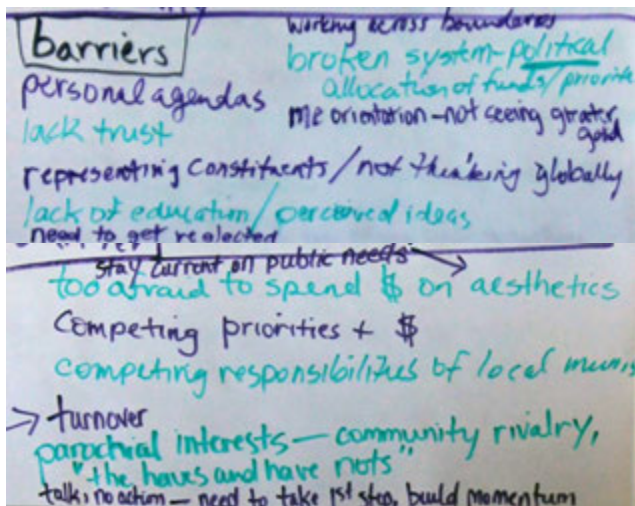 barriers
personal agendas
lack trust
working across boundaries
broken system-political
allocation of funds/
me orientation-not seeing grater
good
representing Constituents/not thinking globally
lack of education/perceived ideas
need to get reelected
stay current on public needs
too afraid to spend $ on aesthetics
Competing priorities + $
competing responsibilities of local
→ turnover
parochial interests — community rivalry,
"the haves and have nots"
talk, no action — need to take 1st step, build momentum